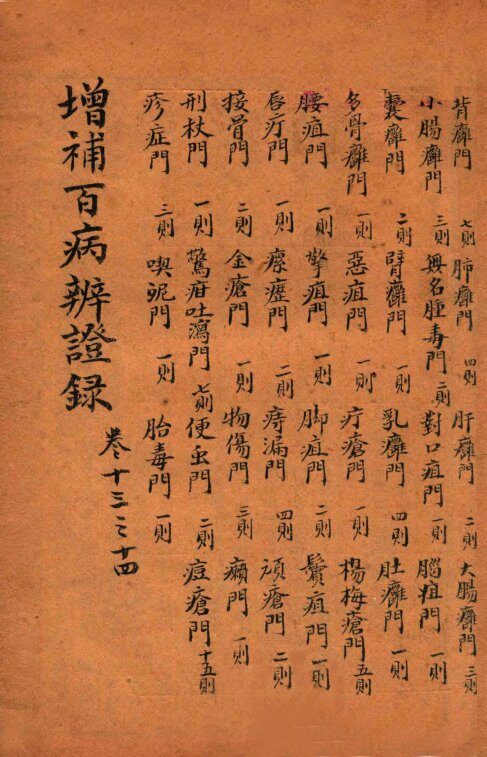 背癰門 七則 肺癰門 四則 肝癰門 二則 大腸癰門 三則
小腸癰門 三則 無名腫毒門 二則 對口疽門 一則 腦疽門 一則
囊癰門 二則 臂癰門 一則 乳癰門 四則 肚癰門 一則
多骨癰門 一則 惡疽門 一則 疔瘡門 一則 楊梅瘡門 五則
腰疽門 一則 擎疽門 一則 脚疽門 二則 鬢疽門 一則
唇疔門 一則 瘰癧門 二則 痔漏門 四則 頑瘡門 二則
接骨門 二則 金瘡門 一則 物傷門 三則 癩門 一則
刑杖門 一則 驚疳吐瀉門 七則 便虫門 二則 痘瘡門 十五則
疹症門 三則 喫泥門 一則 胎毒門 一則
增補百病辨證録 卷十三之十四